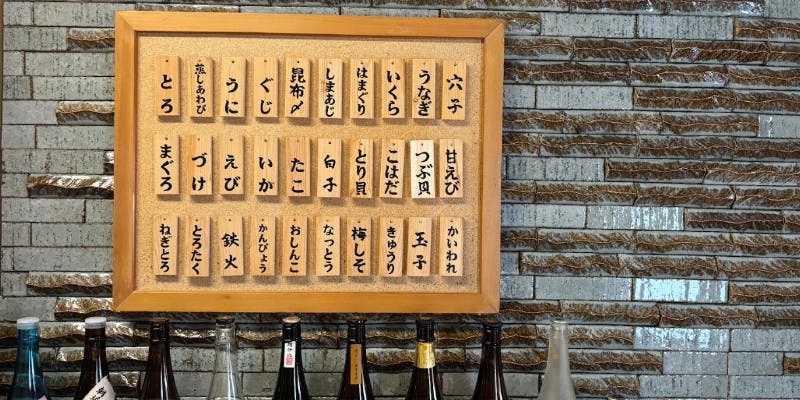 穴子
うなぎ
いくら
はまぐり
しまあじ
昆布〆
ぐじ
うに
蒸しあわび
とろ
甘えび
つぶ貝
こはだ
とり貝
白子
たこ
いか
えび
づけ
まぐろ
かいわれ
玉子
きゅうり
梅しそ
なっとう
おしんこ
かんぴょう
鉄火
とろたく
ねぎとろ